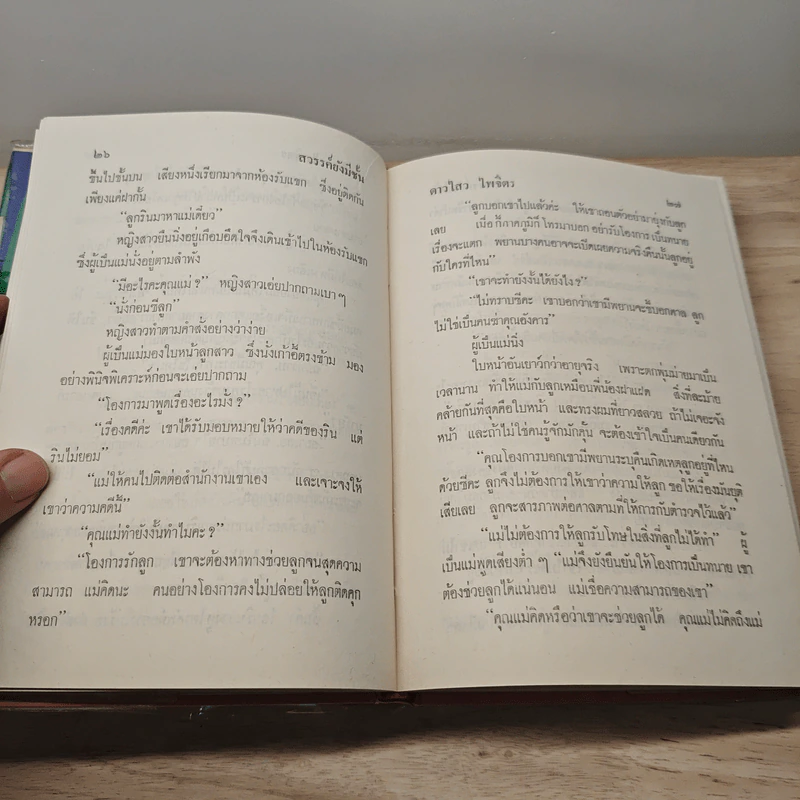 ๒๖
สวรรค์ยังมีชั้น
ขึ้นไปชั้นบน เสียงหนึ่งเรียกมาจากห้องรับแขก ซึ่งอยู่ติดกัน
เพียงแค่ฝากั้น
“ลูกรินมาหาแม่เดี๋ยว”
หญิงสาวยืนนิ่งอยู่เกือบอึดใจจึงเดินเข้าไปในห้องรับแขก
ซึ่งผู้เป็นแม่นั่งอยู่ตามลำพัง
“มีอะไรคะคุณแม่ ?” หญิงสาวเอ่ยปากถามเบา ๆ
“นั่งก่อนซีลูก”
หญิงสาวทำตามคำสั่งอย่างว่าง่าย
ผู้เป็นแม่มองใบหน้าลูกสาว ซึ่งนั่งเก้าอี้ตรงข้าม มอง
อย่างพินิจพิเคราะห์ก่อนจะเอ่ยปากถาม
“โองการมาพูดเรื่องอะไรมั่ง ?”
“เรื่องคดีค่ะ เขาได้รับมอบหมายให้ว่าคดีของริน แต่
รินไม่ยอม”
“แม่ให้คนไปติดต่อสำนักงานเขาเอง และเจาะจงให้
เขาว่าความคดีนี้”
“คุณแม่ทำยังงั้นทำไมคะ ?”
“โองการรักลูก เขาจะต้องหาทางช่วยลูกจนสุดความ
สามารถ แม่คิดนะ คนอย่างโองการคงไม่ปล่อยให้ลูกติดคุก
หรอก”
ดาวใสว ไพจิตร
๒๗
“ลูกบอกเขาไปแล้วค่ะ ให้เขาถอนตัวอย่ามายุ่งกับลูก
เลย เนื่อ ก็ภาคภูมิก็ โทรมาบอก อย่ารับโองการ เป็นทนาย
เรื่องจะแตก พยานบางคนอาจจะเปิดเผยความจริงคืนนั้นลูกอยู่
กับใครที่ไหน”
“เขาจะทำยังงั้นได้ยังไง ?”
“ไม่ทราบซีคะ เขาบอกว่าเขามีพยานจะชี้บอกศาล ลูก
ไม่ใช่เป็นคนฆ่าคุณอังคาร”
ผู้เป็นแม่นิ่ง
ใบหน้าอันเยาว์กว่าอายุจริง เพราะตกพุ่มม่ายมาเป็น
เวลานาน ทำให้แม่กับลูกเหมือนพี่น้องฝาแฝด สิ่งที่ละม้าย
คล้ายกันที่สุดคือใบหน้า และทรงผมที่ยาวสลวย ถ้าไม่เจอะจัง
หน้า และถ้าไม่ใช่คนรู้จักมักคุ้น จะต้องเข้าใจเป็นคนเดียวกัน
“คุณโองการบอกเขามีพยานระบุคืนเกิดเหตุลูกอยู่ที่ไหน
ด้วยซีคะ ลูกจึงไม่ต้องการให้เขาว่าความให้ลูก ขอให้เรื่องมันยุติ
เสียเลย ลูกจะสารภาพต่อศาลตามที่ให้การกับตำรวจไว้แล้ว”
“แม่ไม่ต้องการให้ลูกรับโทษในสิ่งที่ลูกไม่ได้ทำ” ผู้
เป็นแม่พูดเสียงต่ำ ๆ “แม่จึงยังยืนยันให้โองการเป็นทนาย เขา
ต้องช่วยลูกได้แน่นอน แม่เชื่อความสามารถของเขา”
“คุณแม่คิดหรือว่าเขาจะช่วยลูกได้ คุณแม่ไม่คิดถึงแม่